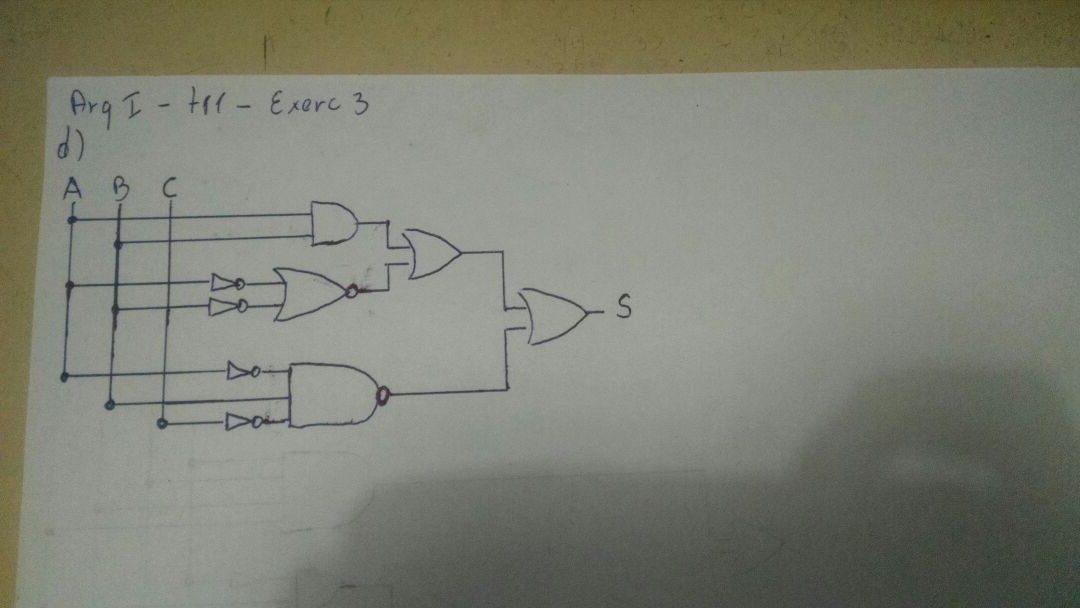 Arq I - t11 - Exerc 3
d)
A B C
S